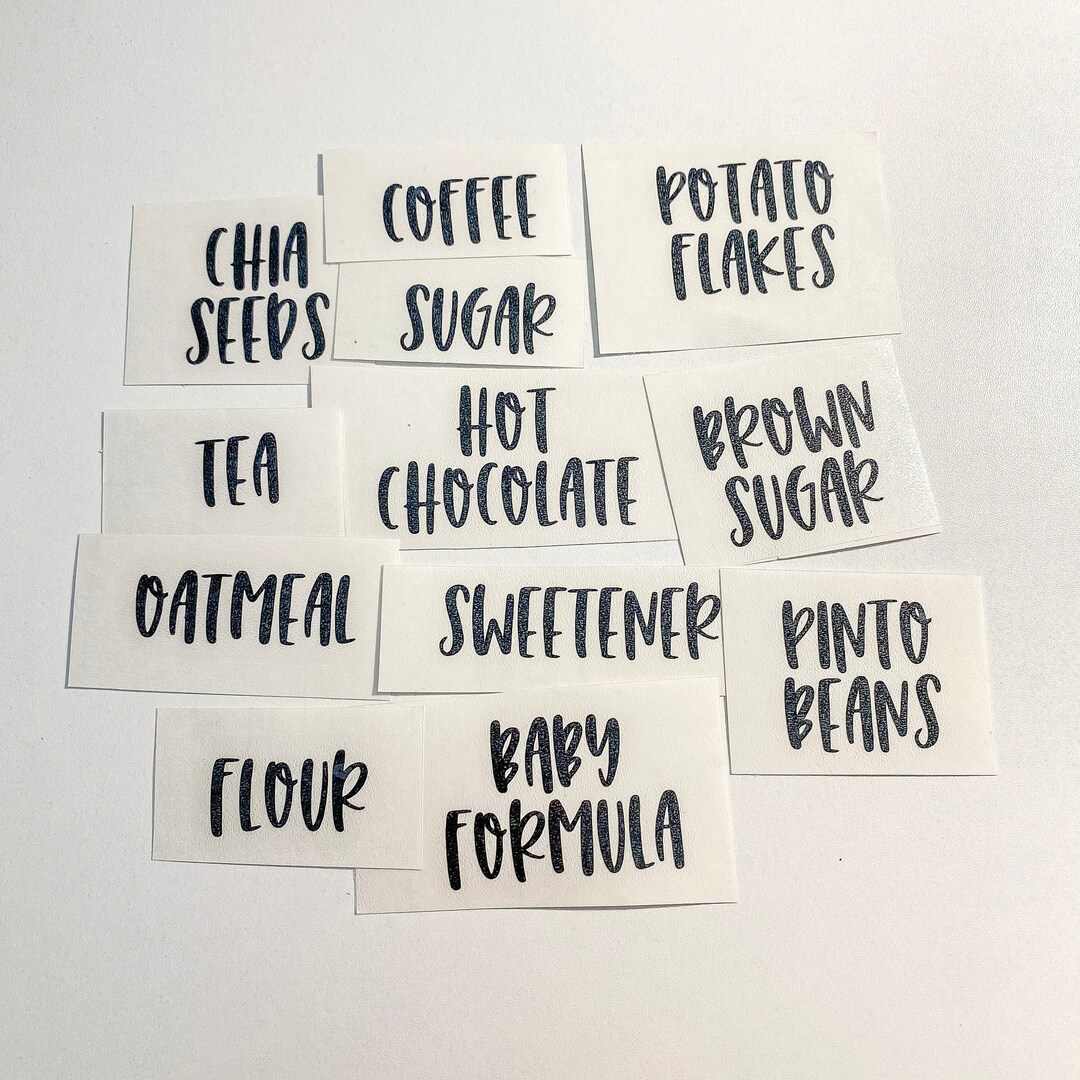 COFFEE
POTATO
FLAKES
CHIA
SEEDS
SUGAR
HOT
CHOCOLATE
BROWN
SUGAR
TEA
OATMEAL
SWEETENER
PINTO
BEANS
FLOUR
BABY
FORMULA